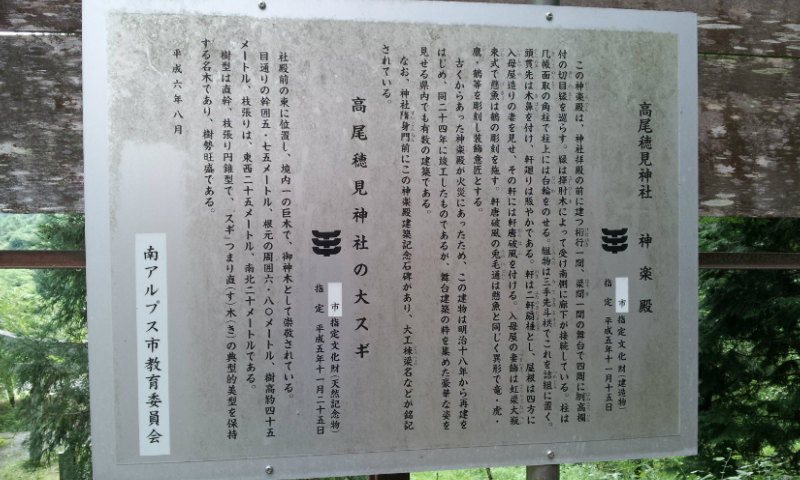 高尾穂見神社 神楽殿
市 指定文化財(建造物)
指定 平成五年十一月十五日
この神楽殿は、神社拝殿の前に建つ桁行一間、梁間一間の舞台で四周に刎高欄
付の切目縁を巡らす。縁は挿肘木によって受け南側に廊下が接続している。柱は
几帳面取の角柱で柱上には台輪をのせる。組物は三手先斗栱でこれを詰組に置く。
頭貫先は木鼻を付け、軒廻りは賑やかである。軒は二軒扇棰とし、屋根は四方に
入母屋造りの妻を見せ、その軒には軒唐破風を付ける。入母屋の妻飾は虹梁大瓶
束式で懸魚は鶴の彫刻を施す。軒唐破風の兎毛通は懸魚と同じく異形で竜・虎・
鷹・鶴等を彫刻し装飾意匠とする。
古くからあった神楽殿が火災にあったため、この建物は明治十八年から再建を
はじめ、同二十四年に竣工したものであるが、舞台建築の粋を集めた豪華な姿を
見せる県内でも有数の建築である。
なお、神社随身門前にこの神楽殿建築記念石碑があり、大工棟梁名などが銘記
されている。
高尾穂見神社の大スギ
市 指定文化財(天然記念物)
指定 平成五年十一月二十五日
社殿前の東に位置し、境内一の巨木で、御神木として崇敬されている。
目通りの幹囲五・七五メートル、根元の周囲六・八〇メートル、樹高約四十五
メートル、枝張りは、東西二十五メートル、南北二十メートルである。
樹型は直幹、枝張り円錐型で、「スギ」つまり直(す)木(き)の典型的美型を保持
する名木であり、樹勢旺盛である。
平成六年八月
南アルプス市教育委員会